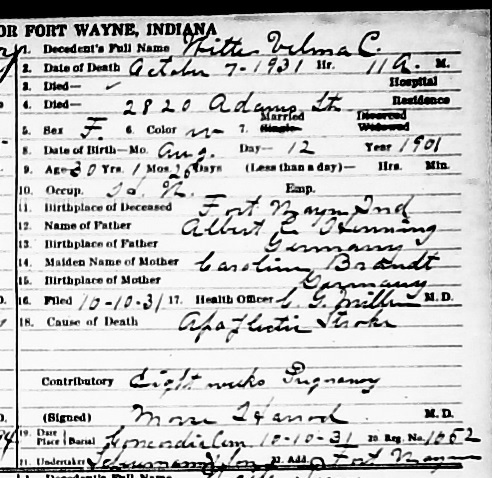 OR FORT WAYNE, INDIANA
1. Decedent's Full Name Witte Velma C.
2. Date of Death October 7-1931 Hr. 11 A. M.
3. Died— Hospital
4. Died— 2820 Adams St Residence
5. Sex F. 6. Color W 7. Married Single Divorced Widowed
8. Date of Birth—Mo. Aug. Day— 12 Year 1901
9. Age 30 Yrs. 1 Mos. 26 Days (Less than a day)— Hrs. Min.
10. Occup. H. W. Emp.
11. Birthplace of Deceased Fort Wayne Ind
12. Name of Father Albert C. Henning
13. Birthplace of Father Germany
14. Maiden Name of Mother Caroline Brandt
15. Birthplace of Mother Germany
16. Filed 10-10-31 17. Health Officer C. G. Miller M. D.
18. Cause of Death Apoplectic Stroke
Contributory Eight weeks Pregnancy
(Signed) Morse Harrod M. D.
19. Date Place Burial Concordia Cem 10-10-31 20. Reg. No. 1652
21. Undertaker 22. Add. Fort Wayne